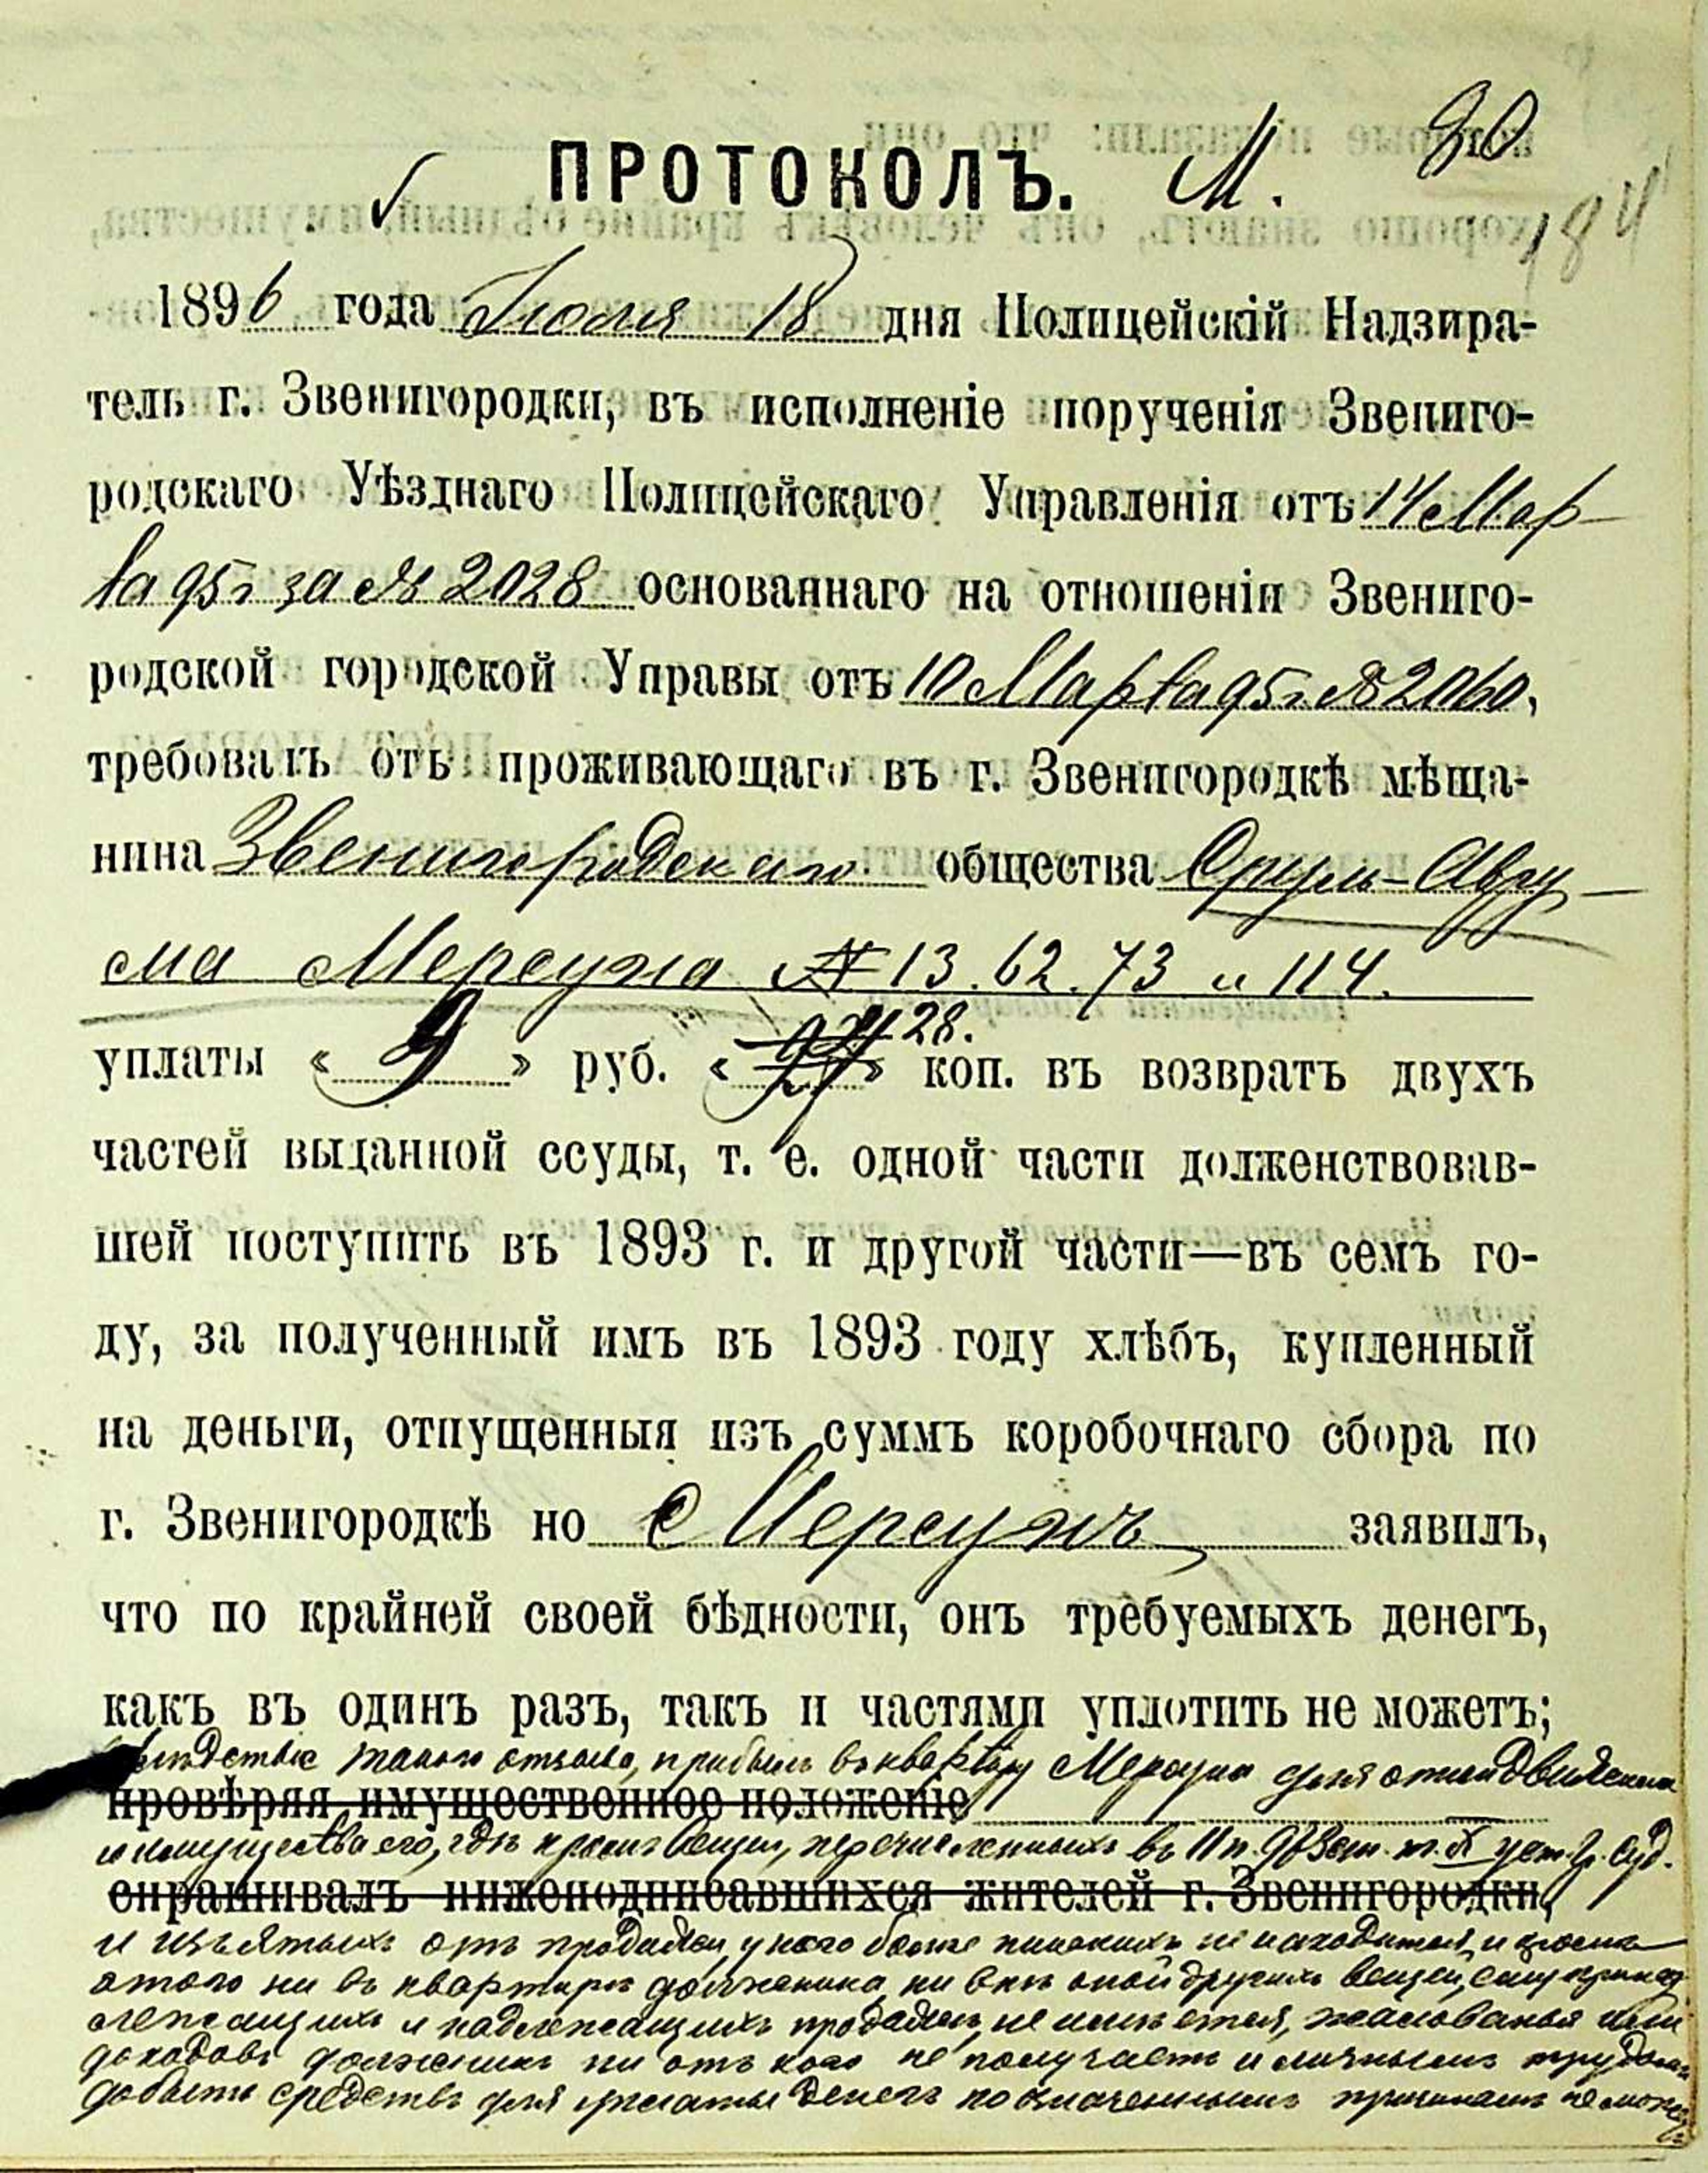 ПРОТОКОЛЪ. М. 80
184
1896 года Іюля 18 дня Полицейскій Надзира-
тель г. Звенигородки, въ исполненіе порученія Звениго-
родскаго Уѣзднаго Полицейскаго Управленія отъ 14 Мар-
та 95 г за № 2028 основаннаго на отношеніи Звениго-
родской городской Управы отъ 10 Марта 95 г № 2060,
требовалъ отъ проживающаго въ г. Звенигородкѣ мѣща-
нина Звенигородскаго общества Срулъ-Авру-
ма Мерсужа № 13. 62. 73 и 114.
28.
уплаты « 9 » руб. « » коп. въ возвратъ двухъ
частей выданной ссуды, т. е. одной части долженствовав-
шей поступить въ 1893 г. и другой части—въ семъ го-
ду, за полученный имъ въ 1893 году хлѣбъ, купленный
на деньги, отпущенныя изъ суммъ коробочнаго сбора по
г. Звенигородкѣ но Мерсужъ заявилъ,
что по крайней своей бѣдности, онъ требуемыхъ денегъ,
какъ въ одинъ разъ, такъ и частями уплотить не можетъ;
вслѣдствіе такого отзыва, прибылъ въ квартиру Мерсужа для описи движимаго
провѣряя имущественное положеніе
имущества его, гдѣ кромѣ вещей, перечисленныхъ въ 11 п. 973 ст. т. X уст. гр. суд.
спрашивалъ нижеподписавшихся жителей г. Звенигородки,
и изъятыхъ отъ продажи, у него более никакихъ не находится, и кроме
этого ни въ квартирѣ должника, ни внѣ оной другихъ вещей, ему принад-
лежащихъ и надлежащихъ продаже, не имѣется, жалованья или
доходовъ должникъ ни отъ кого не получаетъ и личнымъ трудомъ
добыть средствъ для уплаты денегъ по означеннымъ причинамъ не можетъ